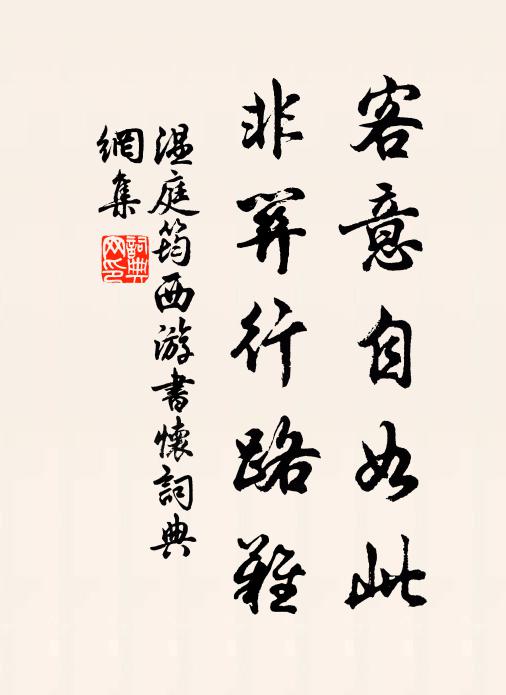 客意自如此
非關行路難
温庭筠西游書懷詞典
網集
詞典
网印